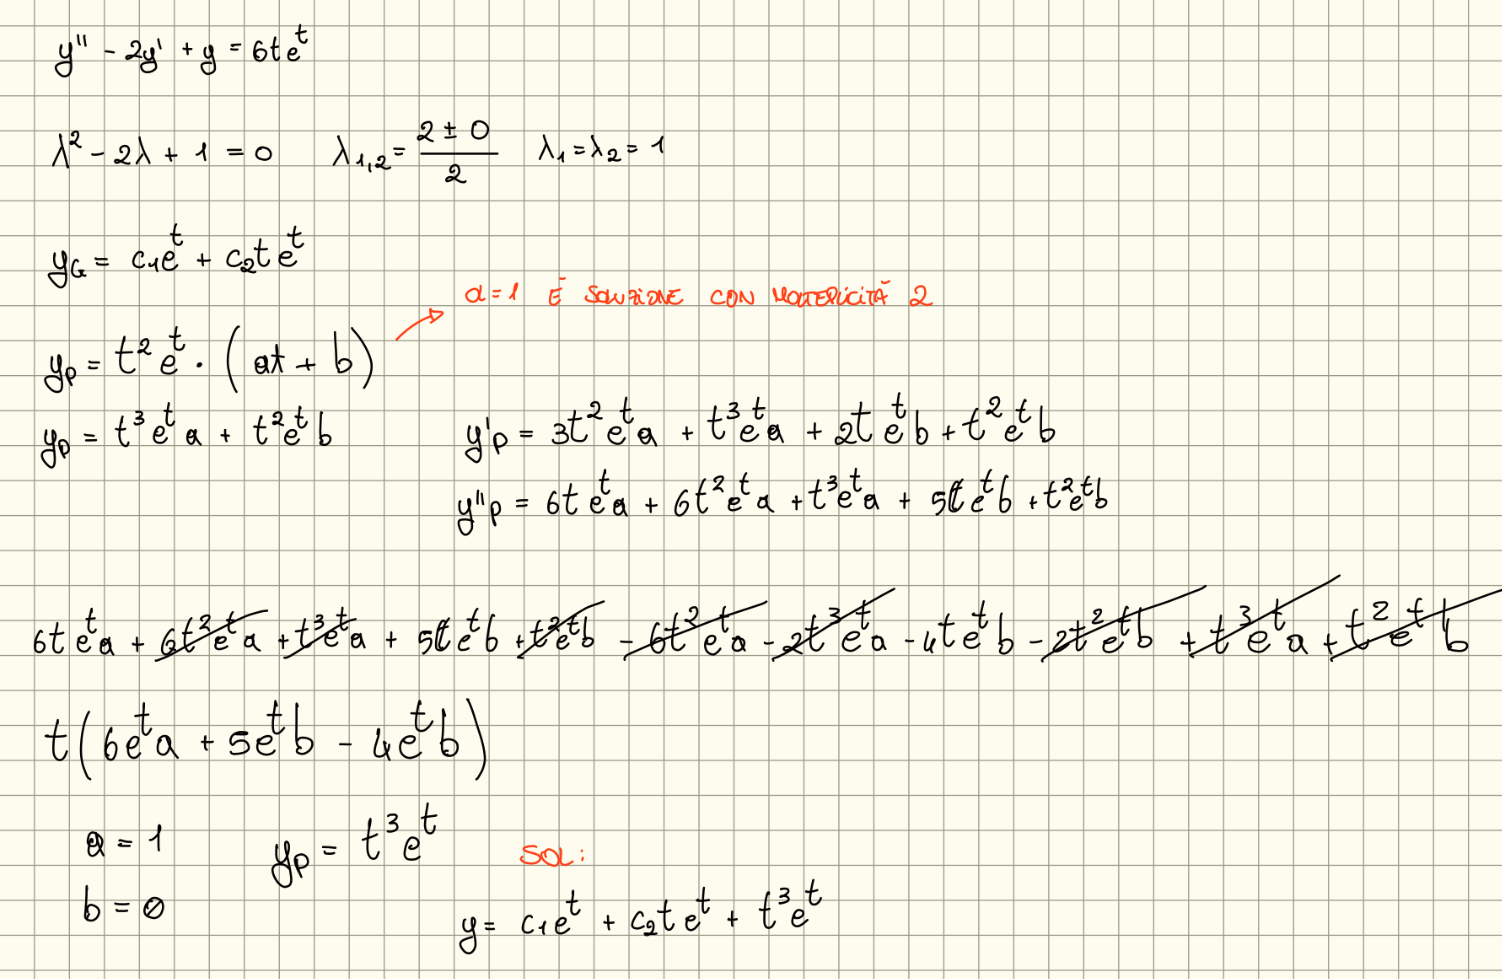 y'' - 2y' + y = 6te^t
λ² - 2λ + 1 = 0   λ₁,₂ = (2 ± 0)/2   λ₁ = λ₂ = 1
y_G = c₁e^t + c₂te^t
α=1 È SOLUZIONE CON MOLTEPLICITÀ 2
y_P = t²e^t · (at + b)
y_P = t³e^t a + t²e^t b   y'_P = 3t²e^t a + t³e^t a + 2te^t b + t²e^t b
y''_P = 6te^t a + 6t²e^t a + t³e^t a + 5te^t b + t²e^t b
6te^t a + 6t²e^t a + t³e^t a + 5te^t b + t²e^t b - 6t²e^t a - 2t³e^t a - 4te^t b - 2t²e^t b + t³e^t a + t²e^t b
t(6e^t a + 5e^t b - 4e^t b)
a = 1   y_P = t³e^t   SOL:
b = 0   y = c₁e^t + c₂te^t + t³e^t